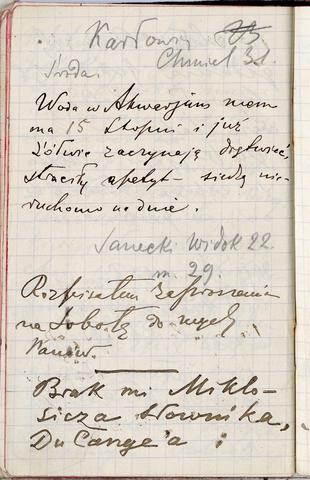 Karłowicz
Chmiel 31.
Środa.
Woda w Akwarjum mem
ma 15 stopni i już
żółwie zaczynają drętwieć,
straciły apetyt – siedzą nie-
ruchomo na dnie.
Janecki Widok 22.
m. 29.
Rozpisałem zaproszenia
na Sobotę do mych
Panów.
Brak mi Miklo-
sicza słownika,
DuCange'a ;